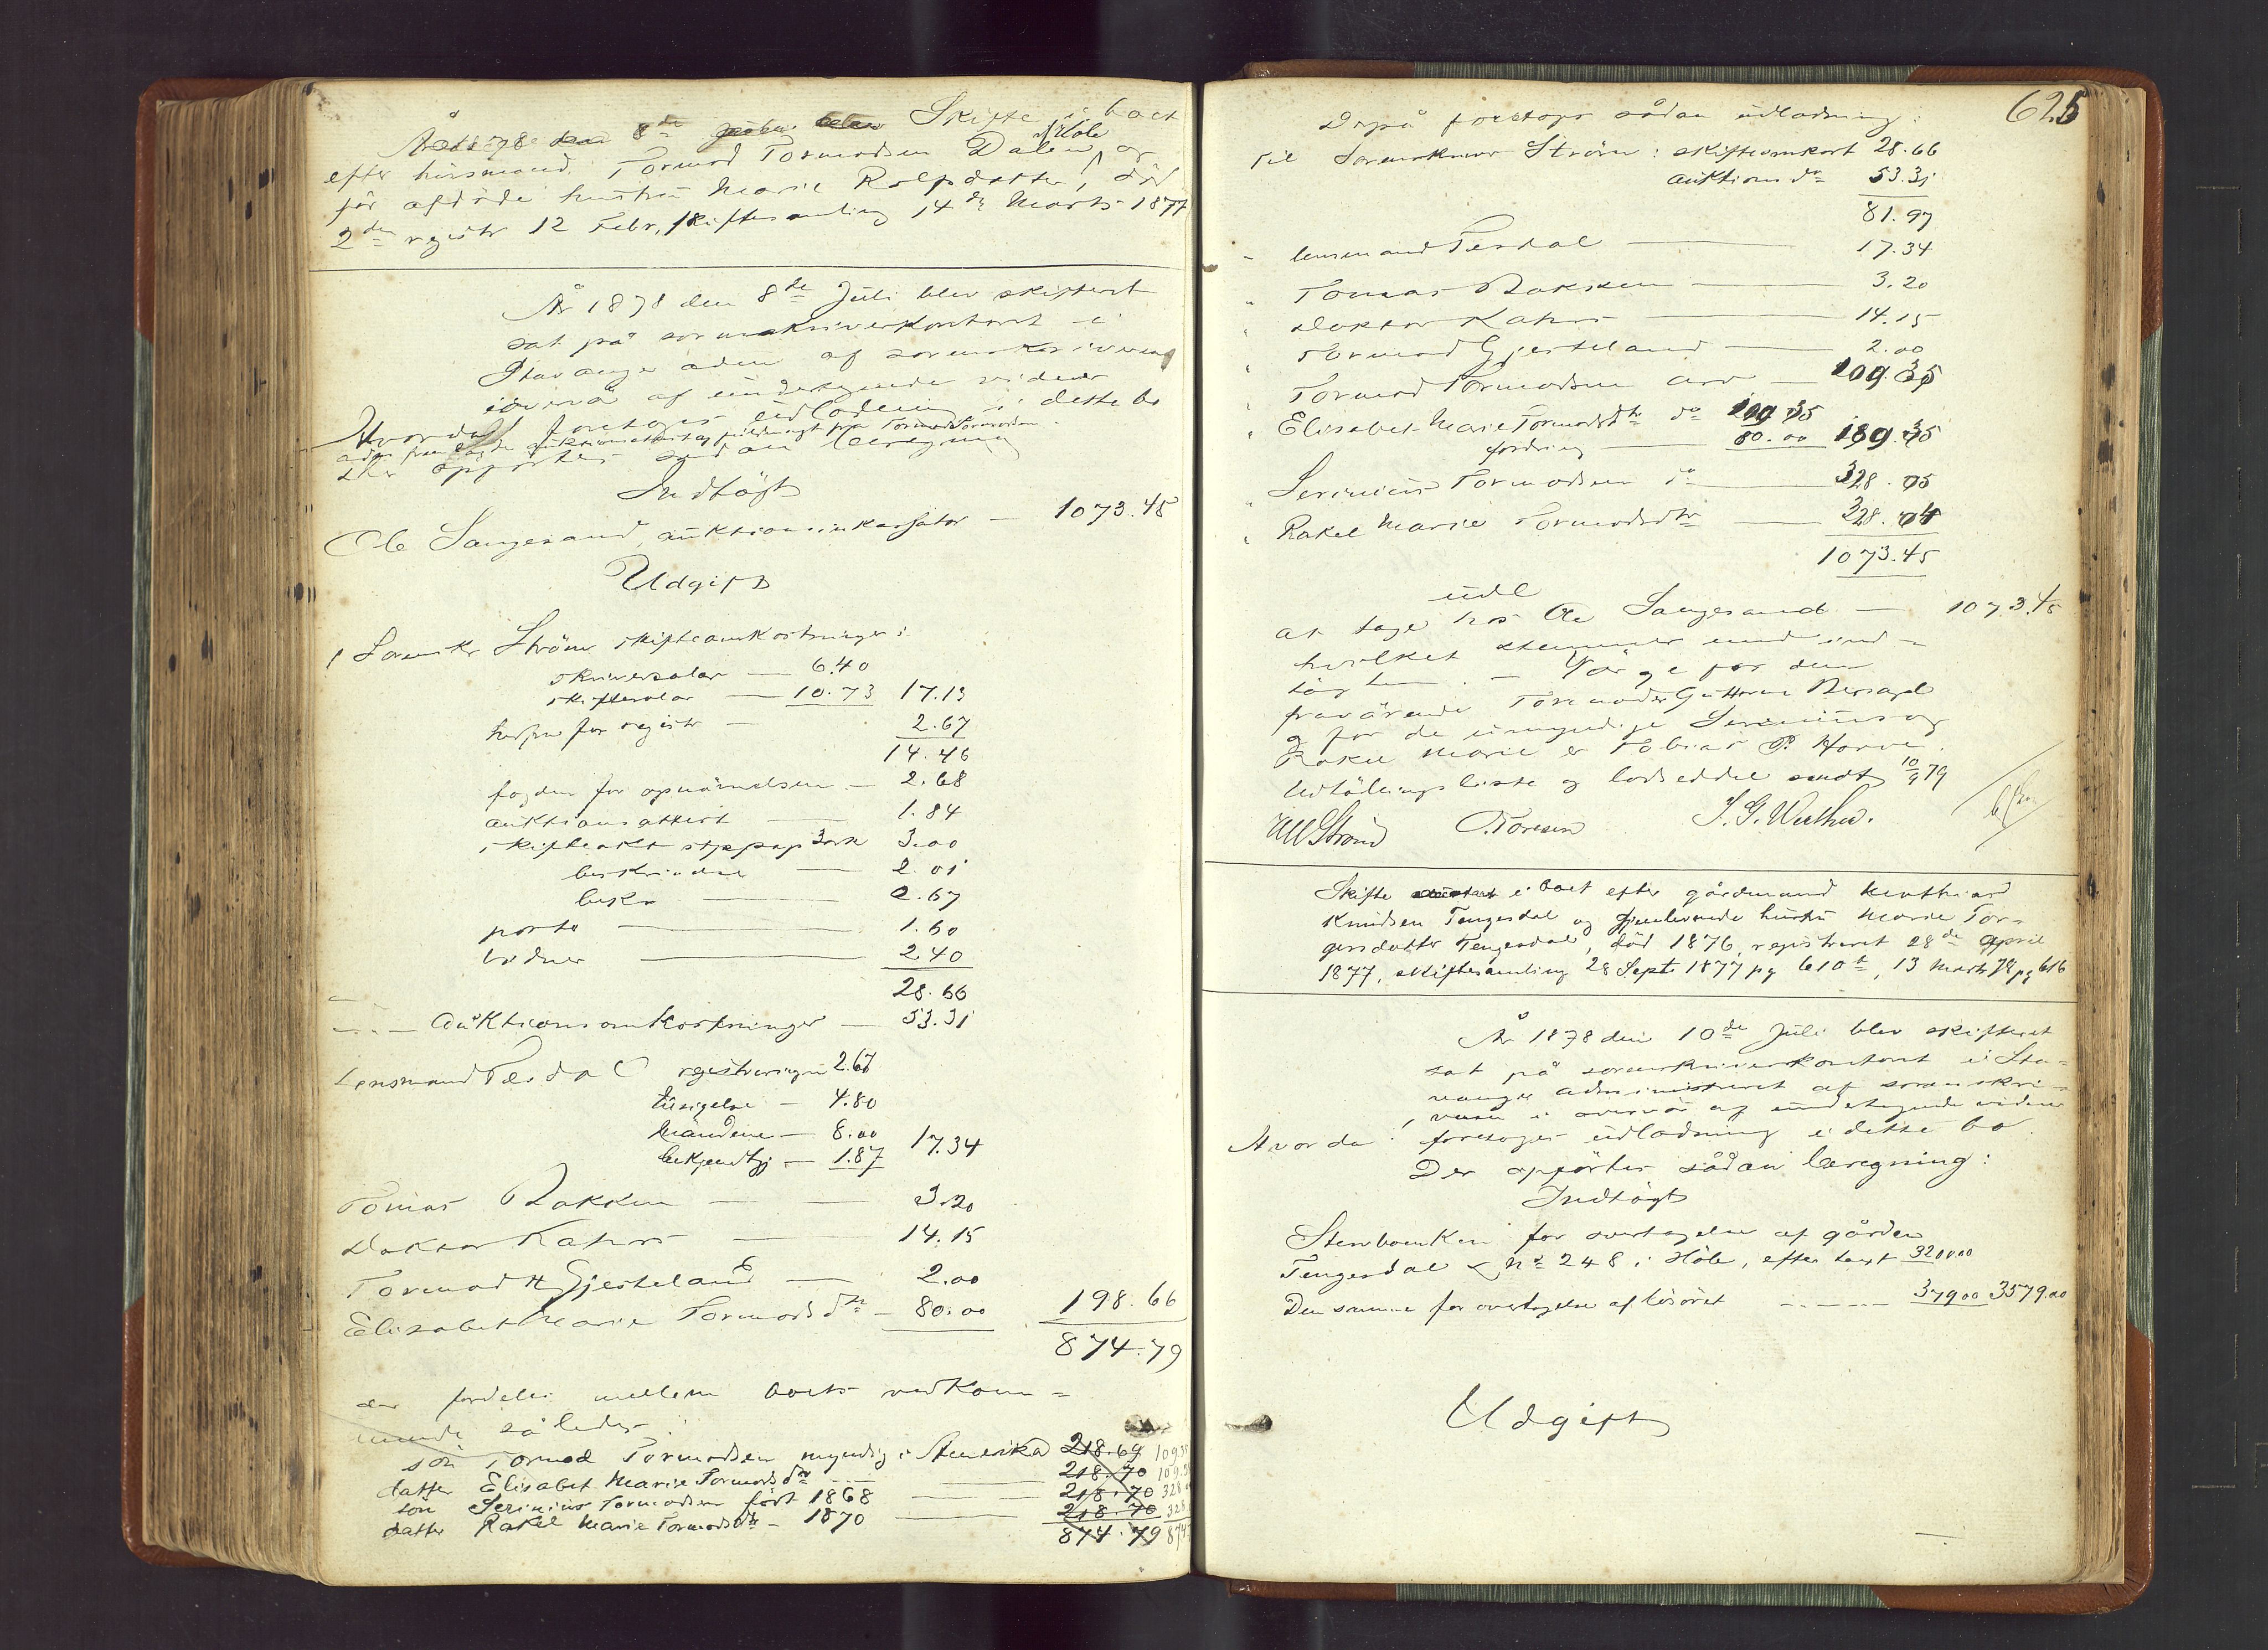 Skifte i boet
efter husmand Tormod Tormodsen Dalen i Höle og
för afdöde hustru Marie Rolfsdatter, död
2den registr 12 Febr, skiftesamling 14de Marts 1877
År 1878 den 8de Juli blev skifteret
sat på sorenskriverkontoret i
Stavanger af sorenskriveren
af undertegnede vidner
Hvorda foretoges udlodning i dette bo
opförtes sådan beregning
Indtägt
Ole Sangesand, auktionsinkassator — 1073.45
Udgift
1 Sorenskr Ström skifteomkostninger:
skriversalær — 6.40
skiftesalær — 10.73 17.13
herfra for registr — 2.67
14.46
fogden for opnävnelsen — 2.68
auktionsattest — 1.84
skifteakt stppap 3 ark 3.00
beskrivelse — 2.01
beskr — 0.67
porto — 1.60
vidner — 2.40
28.66
Auktionsomkostninger — 53.31
Lensmand Tesdal registreringen 2.67
tilsigelse — 4.80
mændene — 8.00 17.34
bekjendtg — 1.87
Tomas Bakken — 3.20
Doktor Kahrs — 14.15
Tormod H Gjesteland — 2.00
Elisabet Marie Tormodsdtr — 80.00 198.66
874.79
der fordeles mellem boets vedkom=
mende således:
sön Tormod Tormodsen myndig i Amerika 218.69 109.35
datter Elisabet Marie Tormodsdtr — 218.70 109.35
sön Serinius Tormodsen födt 1868 — 218.70 328
datter Rakel Marie Tormodsdtr — 1870 — 218.70 328
874.79 874
625
Derpå foretoges sådan udlodning:
Til Sorenskriver Ström: skifteomkost 28.66
auktions do 53.31
81.97
" lensmand Tesdal — 17.34
" Tomas Bakken — 3.20
" Doktor Kahrs — 14.15
" Tormod Gjesteland — 2.00
" Tormod Tormodsen arv — 109.35
" Elisabet Marie Tormodsdtr do 109.35
fordring — 80.00 189.35
" Serinius Tormodsen do — 328.05
" Rakel Marie Tormodsdtr — 328.04
1073.45
udl
at tage hos Ole Sangesand — 1073.45
hvilket stemmer med ind=
tägten. — Värge for den
fraværende Tormod er Guttorm Bersagel
og for de umyndige Serinius og
Rakel Marie er Tobias P. Horve.
Udlodningsliste og lodseddel sendt 10/9 79
Ström O. Toresen
Skifte i boet efter gårdmand Mathias
Knudsen Tengesdal og gjenlevende hustru Marie Tor=
gersdatter Tengesdal, död 1876, registreret 28de April
1877, skiftesamling 28 Sept 1877 pg 610, 13 Marts 78 pg 616
År 1878 den 10de Juli blev skifteret
sat på sorenskriverkontoret i Sta=
vanger administreret af sorenskri=
veren i overvär af undertegnede vidner
Hvorda: foretoges udlodning i dette bo.
Der opförtes sådan beregning:
Indtägt
Stervboenken for overtagelse af gården
Tengesdal No 248 i Höle, efter taxt 3200.00
Den samme for overtagelse af lösöret — 379.00 3579.00
Udgift